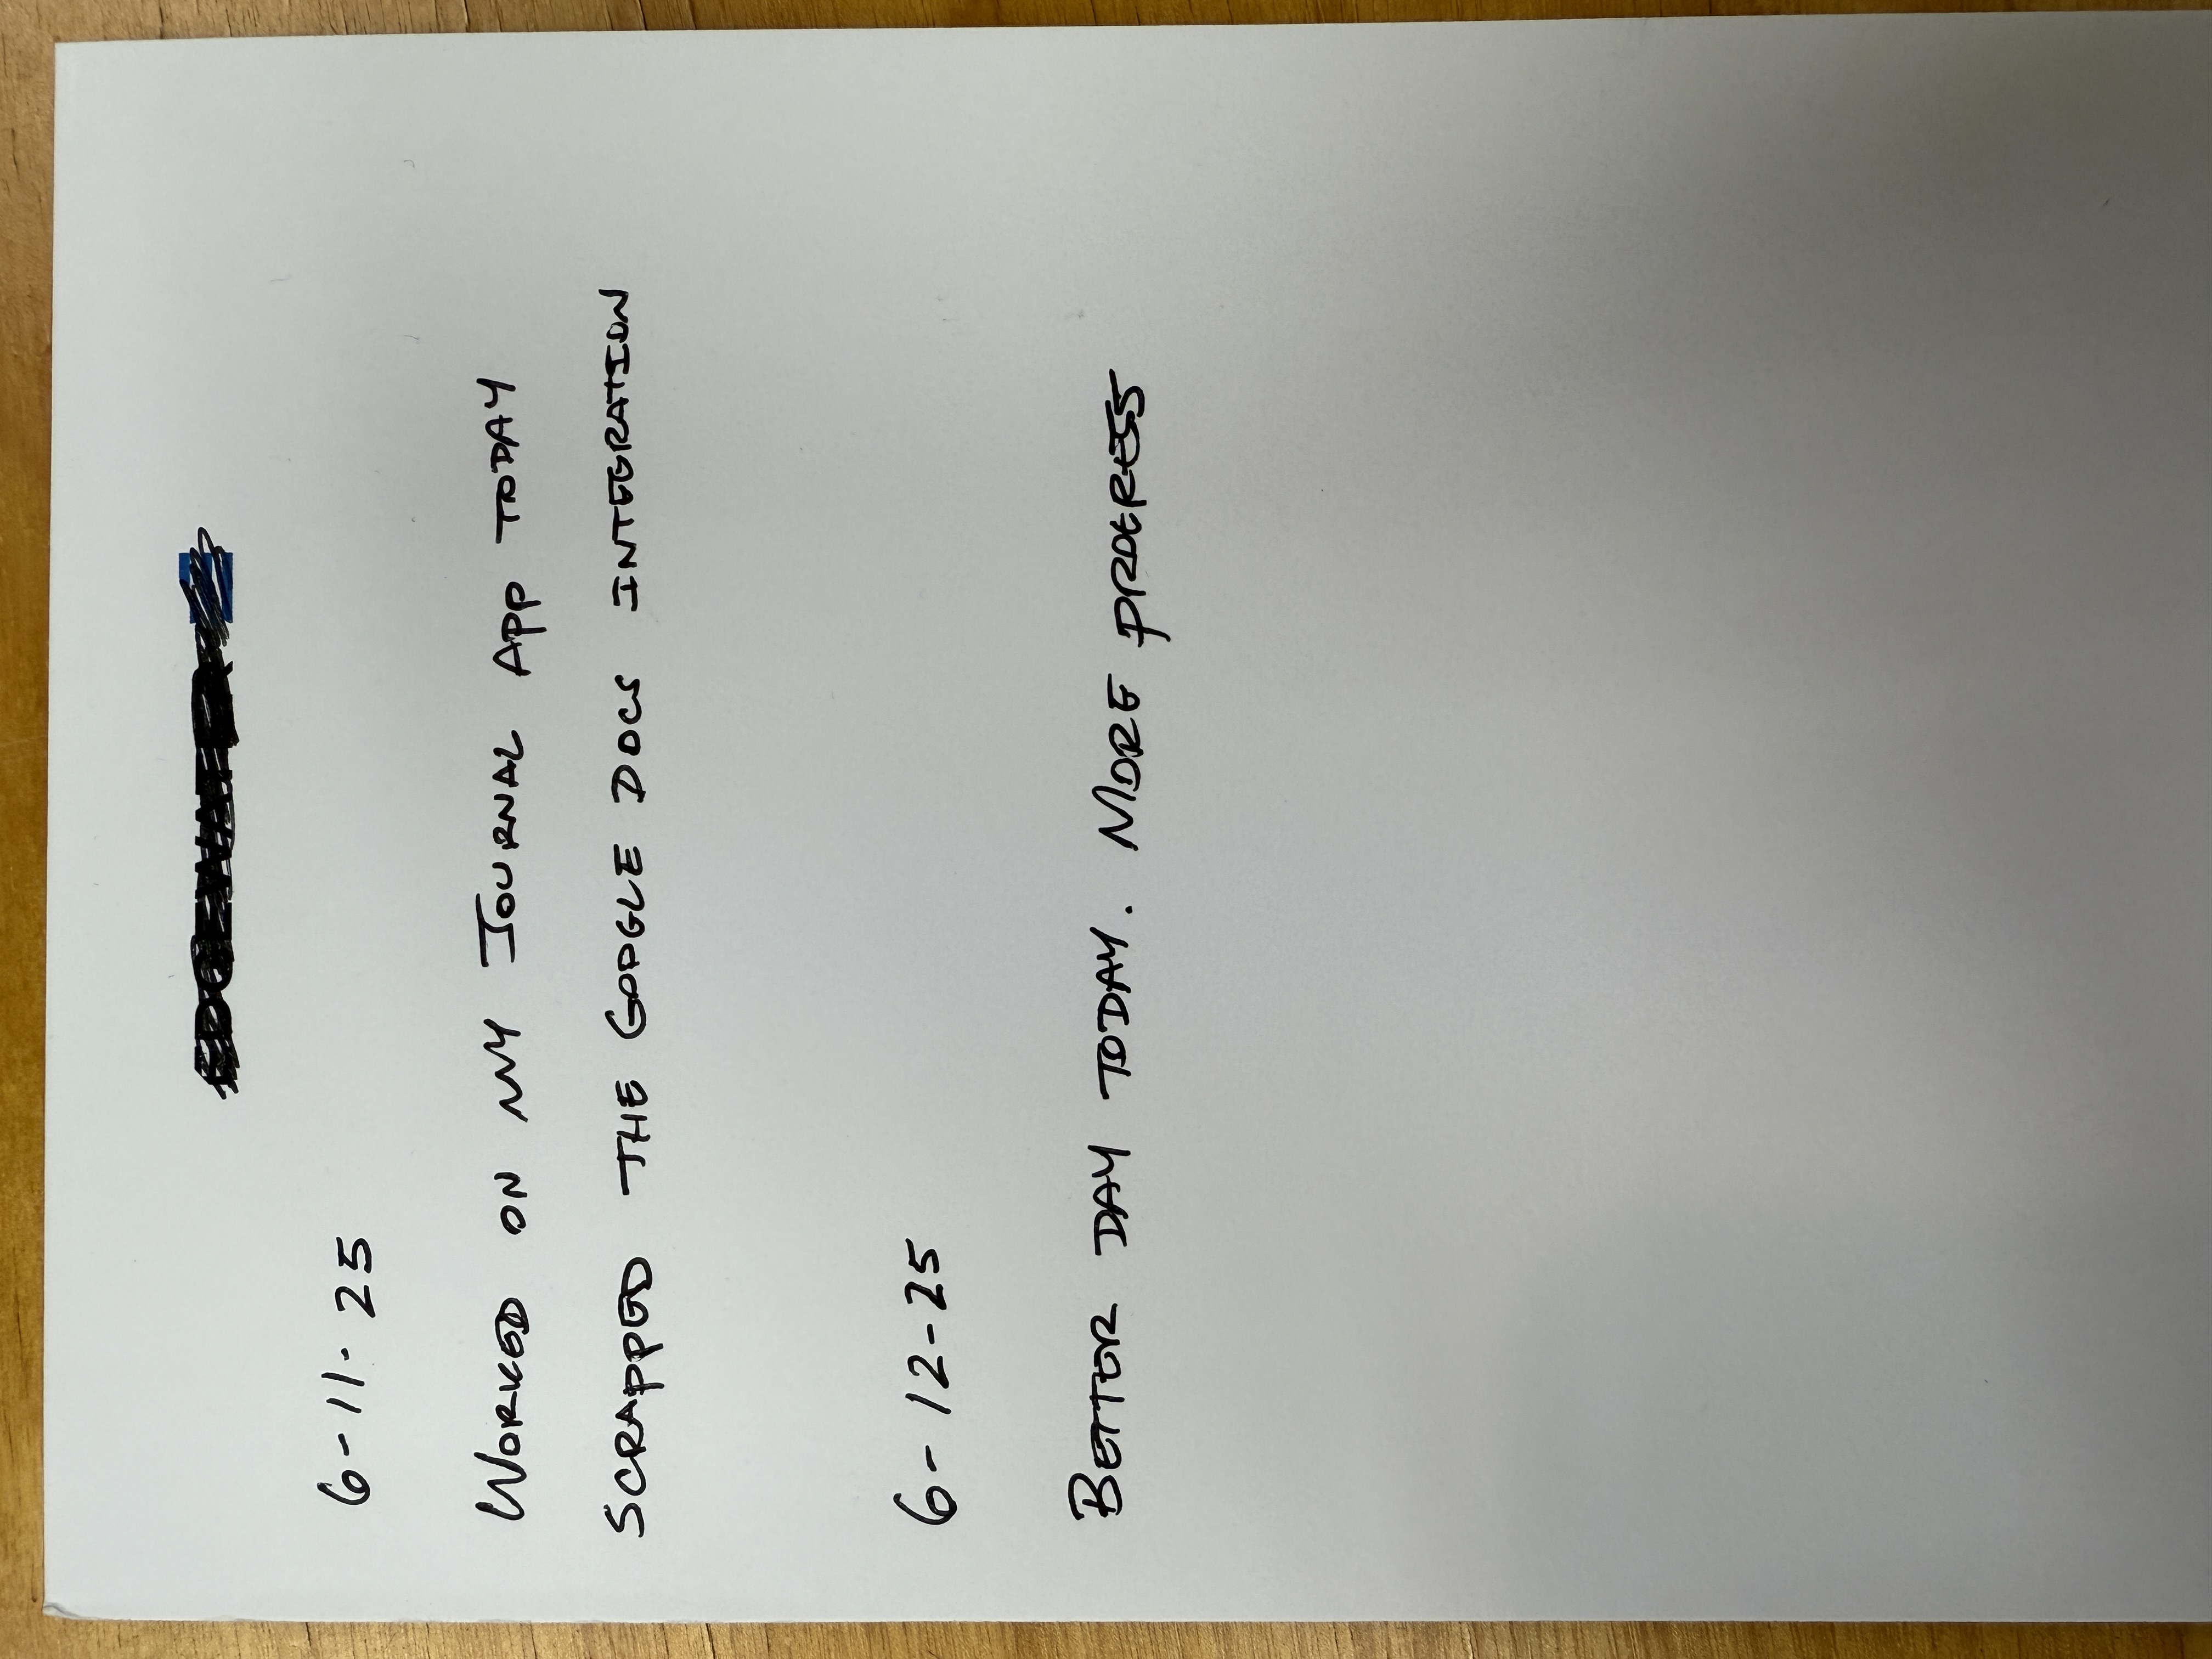 6-11-25
WORKED ON MY JOURNAL APP TODAY
SCRAPPED THE GOOGLE DOCS INTEGRATION
6-12-25
BETTER DAY TODAY. MORE PROGRESS